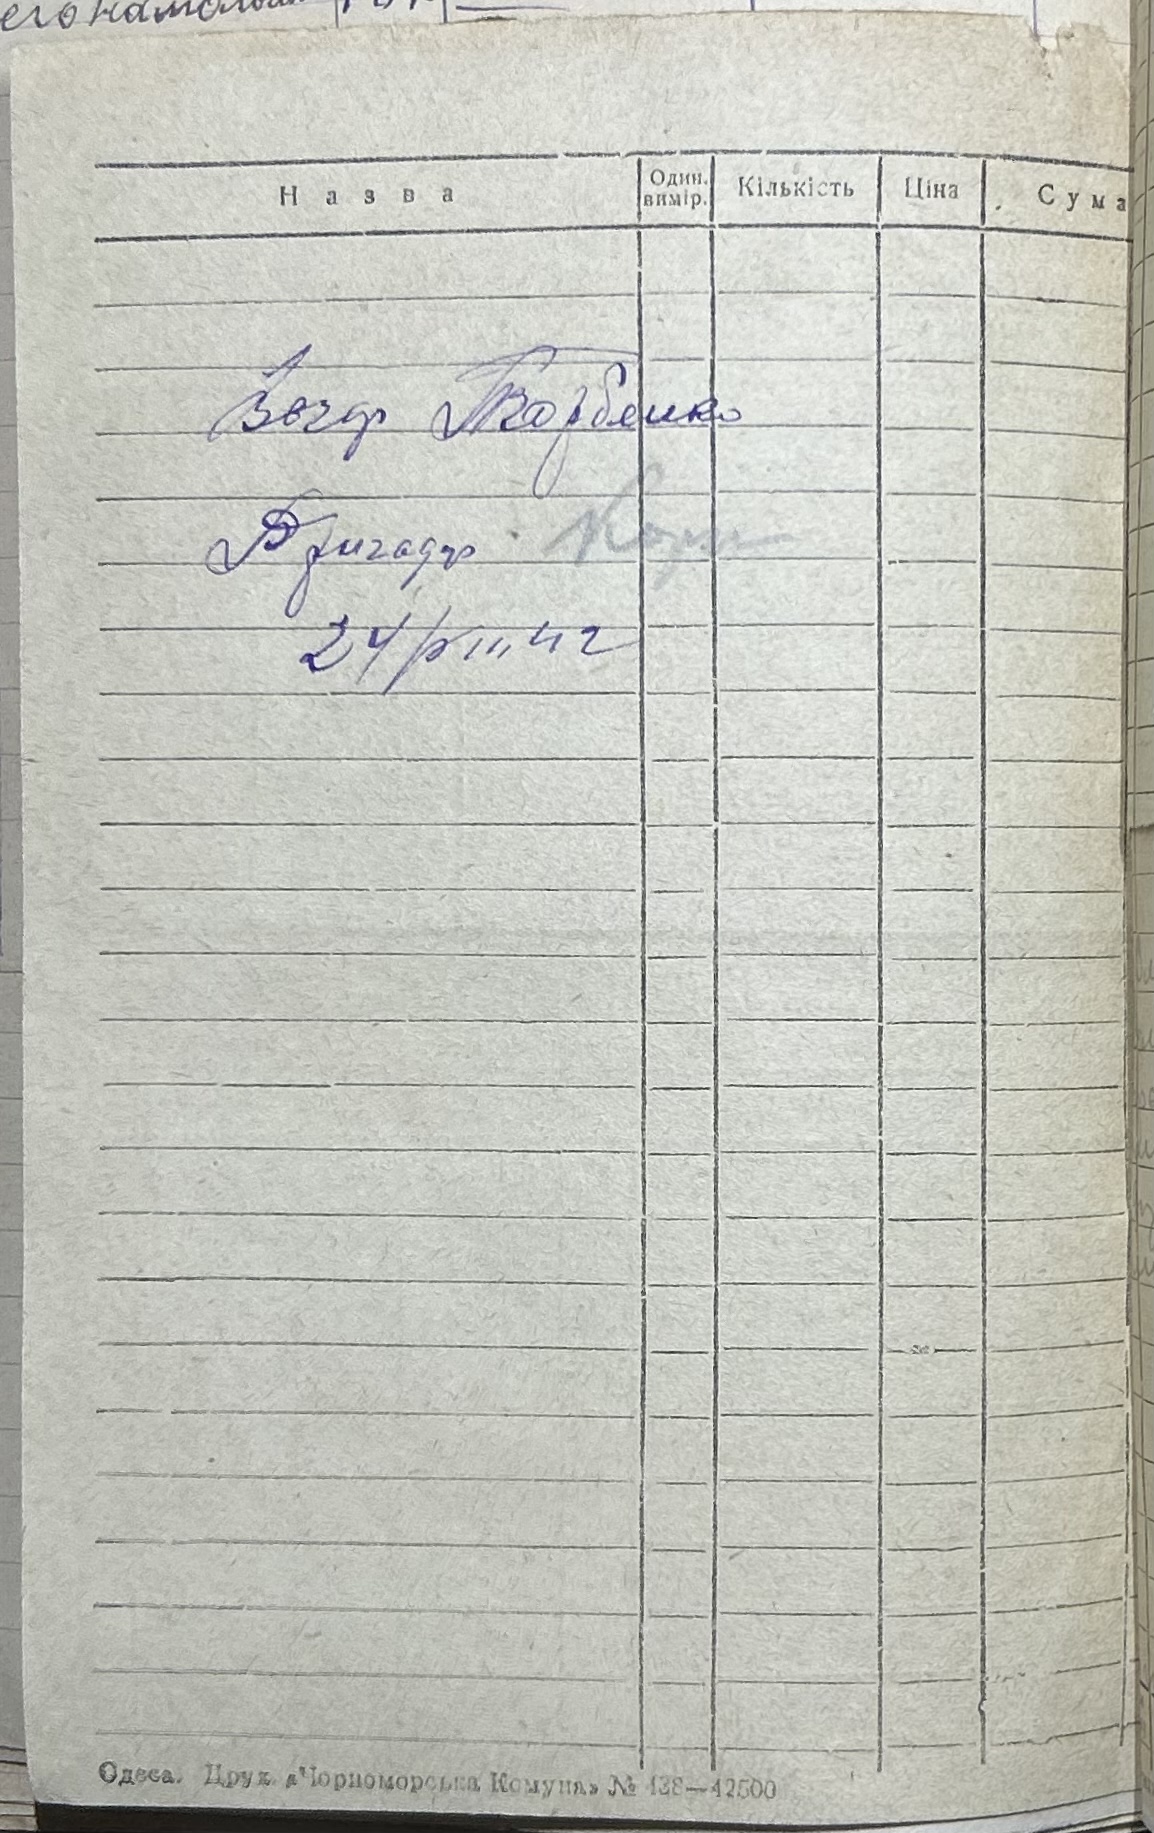 Назва Один. вимір. Кількість Ціна Сума
Завгр Торбенко
Бригадр
24/VIII 42
Одеса. Друк. «Чорноморська Комуна» № 138—42500